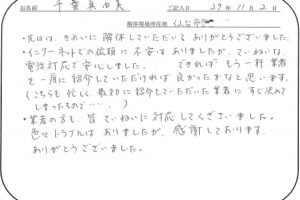 お名前 千葉真由美 ご記入日 29年11月2日
解体現場所在地 仙台市
・先日は、きれいに解体していただいてありがとうございました。
・インターネットでの依頼に不安はありましたが、ていねいな、
電話対応で安心しました。 できれば もう一軒 業者
を一度に紹介していただければ良かったかなと思います。
(こちらも忙しく、最初に紹介していただいた業者に すぐ決めて
しまったもので…。)
・業者の方も、皆ていねいに対応してくださいました。
色々トラブルはありましたが、感謝しております。
ありがとうございました。